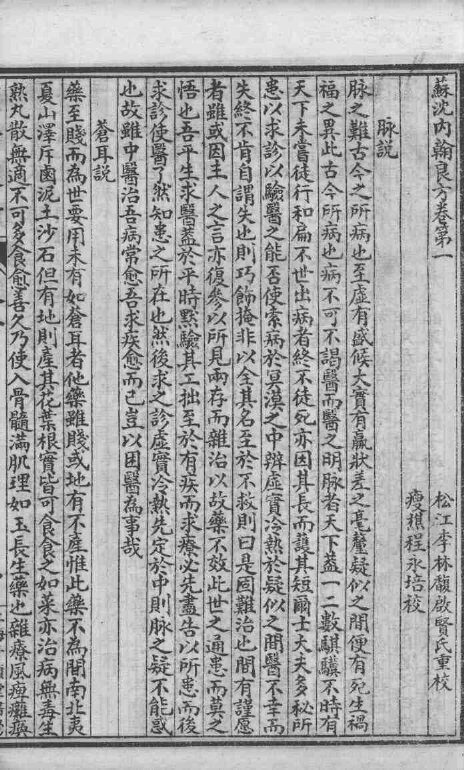 蘇沈內翰良方卷第一
松江李林馥啟賢氏重校
瘦樵程永培校
脉說
脉之難古今之所病也至虛有盛候大實有羸狀差之毫釐疑似之間便有死生禍
福之異此古今所病也病不可不謁醫而醫之明脉者天下蓋一二數騏驥不時有
天下未嘗徒行和扁不世出病者終不徒死亦因其長而護其短爾士大夫多秘所
患以求診以驗醫之能否使索病於冥漠之中辨虛實冷熱於疑似之間醫不幸而
失終不肯自謂失也則巧飾掩非以全其名至於不救則曰是固難治也間有謹愿
者雖或因主人之言亦復參以所見兩存而雜治以故藥不效此世之通患而莫之
悟也吾平生求醫蓋於平時默驗其工拙至於有疾而求療必先盡告以所患而後
求診使醫了然知患之所在也然後求之診虛實冷熱先定於中則脉之疑不能惑
也故雖中醫治吾病常愈吾求疾愈而已豈以困醫為事哉
蒼耳說
藥至賤而為世要用未有如蒼耳者他藥雖賤或地有不產惟此藥不為間南北夷
夏山澤斥鹵泥土沙石但有地則產其花葉根實皆可食食之如菜亦治病無毒生
熟丸散無適不可多食愈善久乃使人骨髓滿肌理如玉長生藥也雜療風痺癱瘓